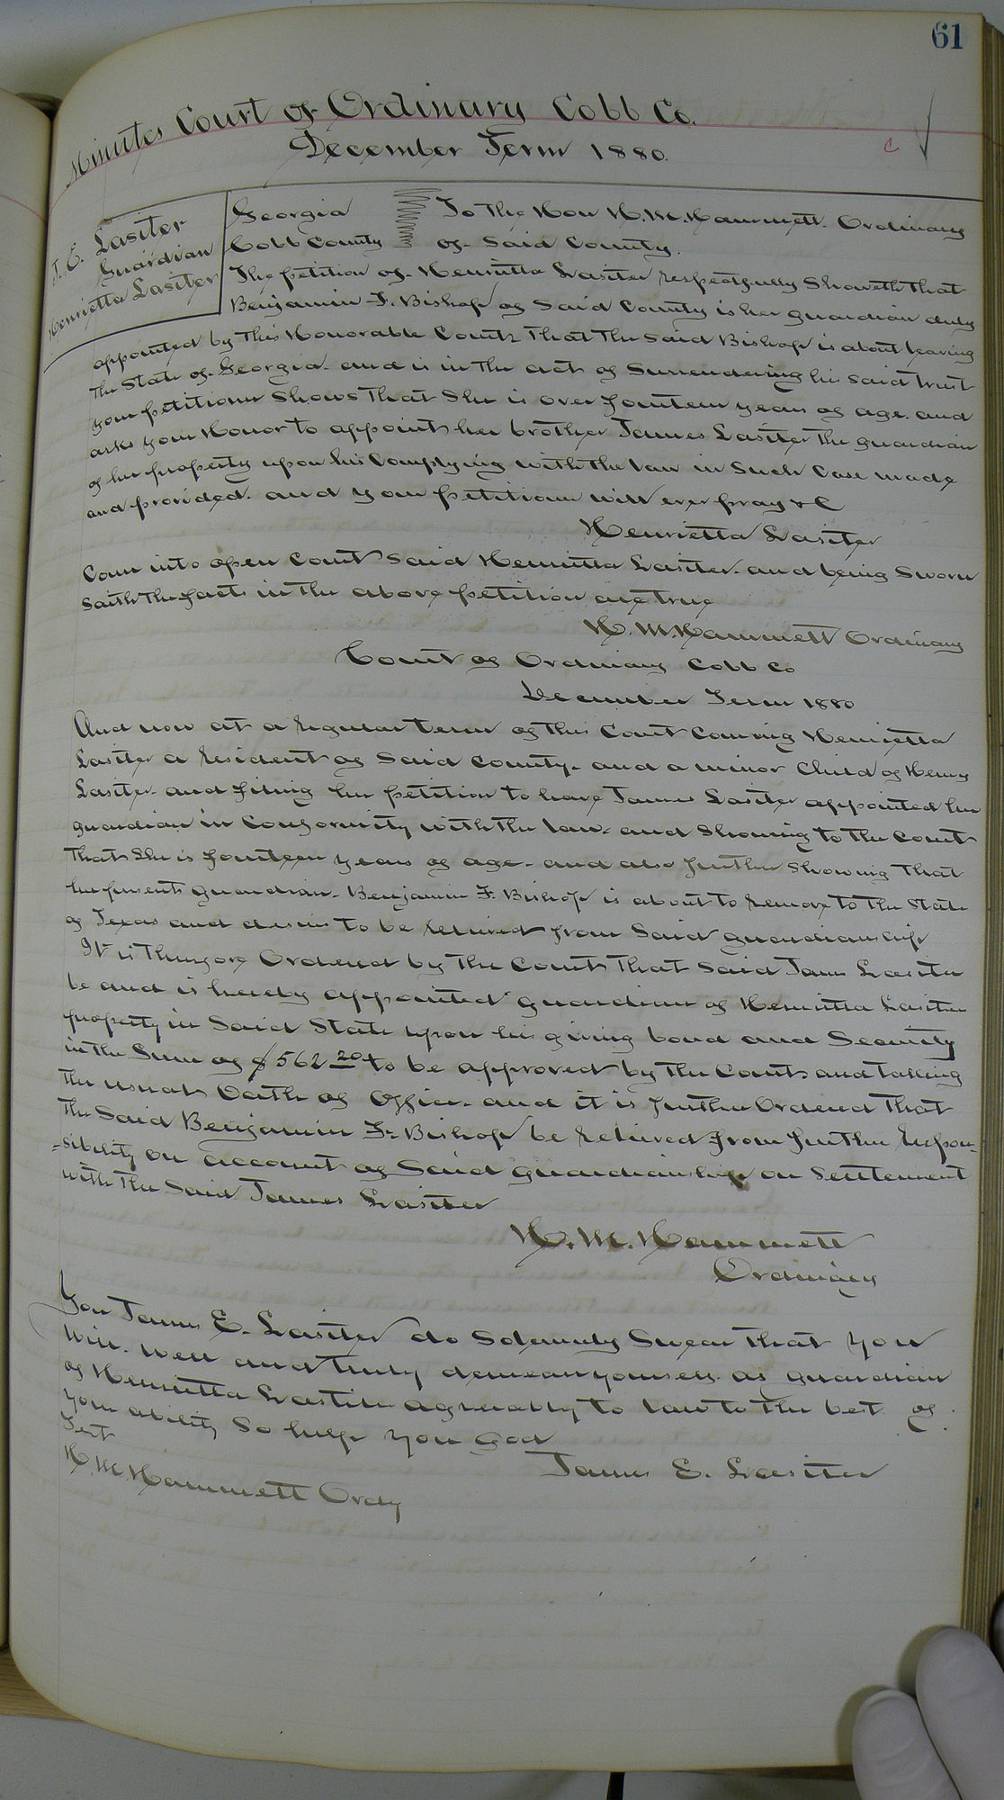 61
Minutes Court of Ordinary Cobb Co.
December Term 1880.
c
J. E. Lasiter
Guardian
Henrietta Lasiter
Georgia
Cobb County
To the Hon H. M. Hammett. Ordinary
of Said County.
The petition of Henrietta Lasiter respectfully Showeth that
Benjamin F. Bishop of Said County is her guardian duly
appointed by this Honorable Court. That the Said Bishop is about leaving
the State of Georgia and is in the act of Surrendering his said trust
your petitioner Shows that She is over fourteen years of age. and
asks your Honor to appoint her brother James Lasiter the guardian
of her property upon his Complying with the law in Such Case made
and provided. and your petitioner will ever pray &C
Henrietta Lasiter
Came into open Court Said Henrietta Lasiter. and being Sworn
Saith the facts in the above petition are true
H. M. Hammett Ordinary
Court of Ordinary Cobb Co
December Term 1880
And now at a regular term of this Court Coming Henrietta
Lasiter a resident of Said County. and a minor Child of Henry
Lasiter and filing her petition to have James Lasiter appointed her
guardian in Conformity with the law. and Showing to the Court
that She is fourteen years of age. and also further Showing that
her present guardian. Benjamin F. Bishop is about to remove to the State
of Texas and desires to be relieved from Said guardianship
It is therefore Ordered by the Court that Said James Lasiter
be and is hereby appointed guardian of Henrietta Lasiter
property in Said State upon his giving bond and Security
in the Sum of $562 20 to be approved by the Court and taking
the usual Oath of Office. and it is further Ordered that
the Said Benjamin F. Bishop be relieved from further Respon-
=sibility on account of Said guardianship on Settlement
with the Said James Lasiter
H. M. Hammett
Ordinary
You James E. Lasiter do Solemnly Swear that you
will. well and truly demean yourself as guardian
of Henrietta Lasiter agreeably to law to the best of
your ability So help you God
Test
James E. Lasiter
H. M. Hammett Ordy